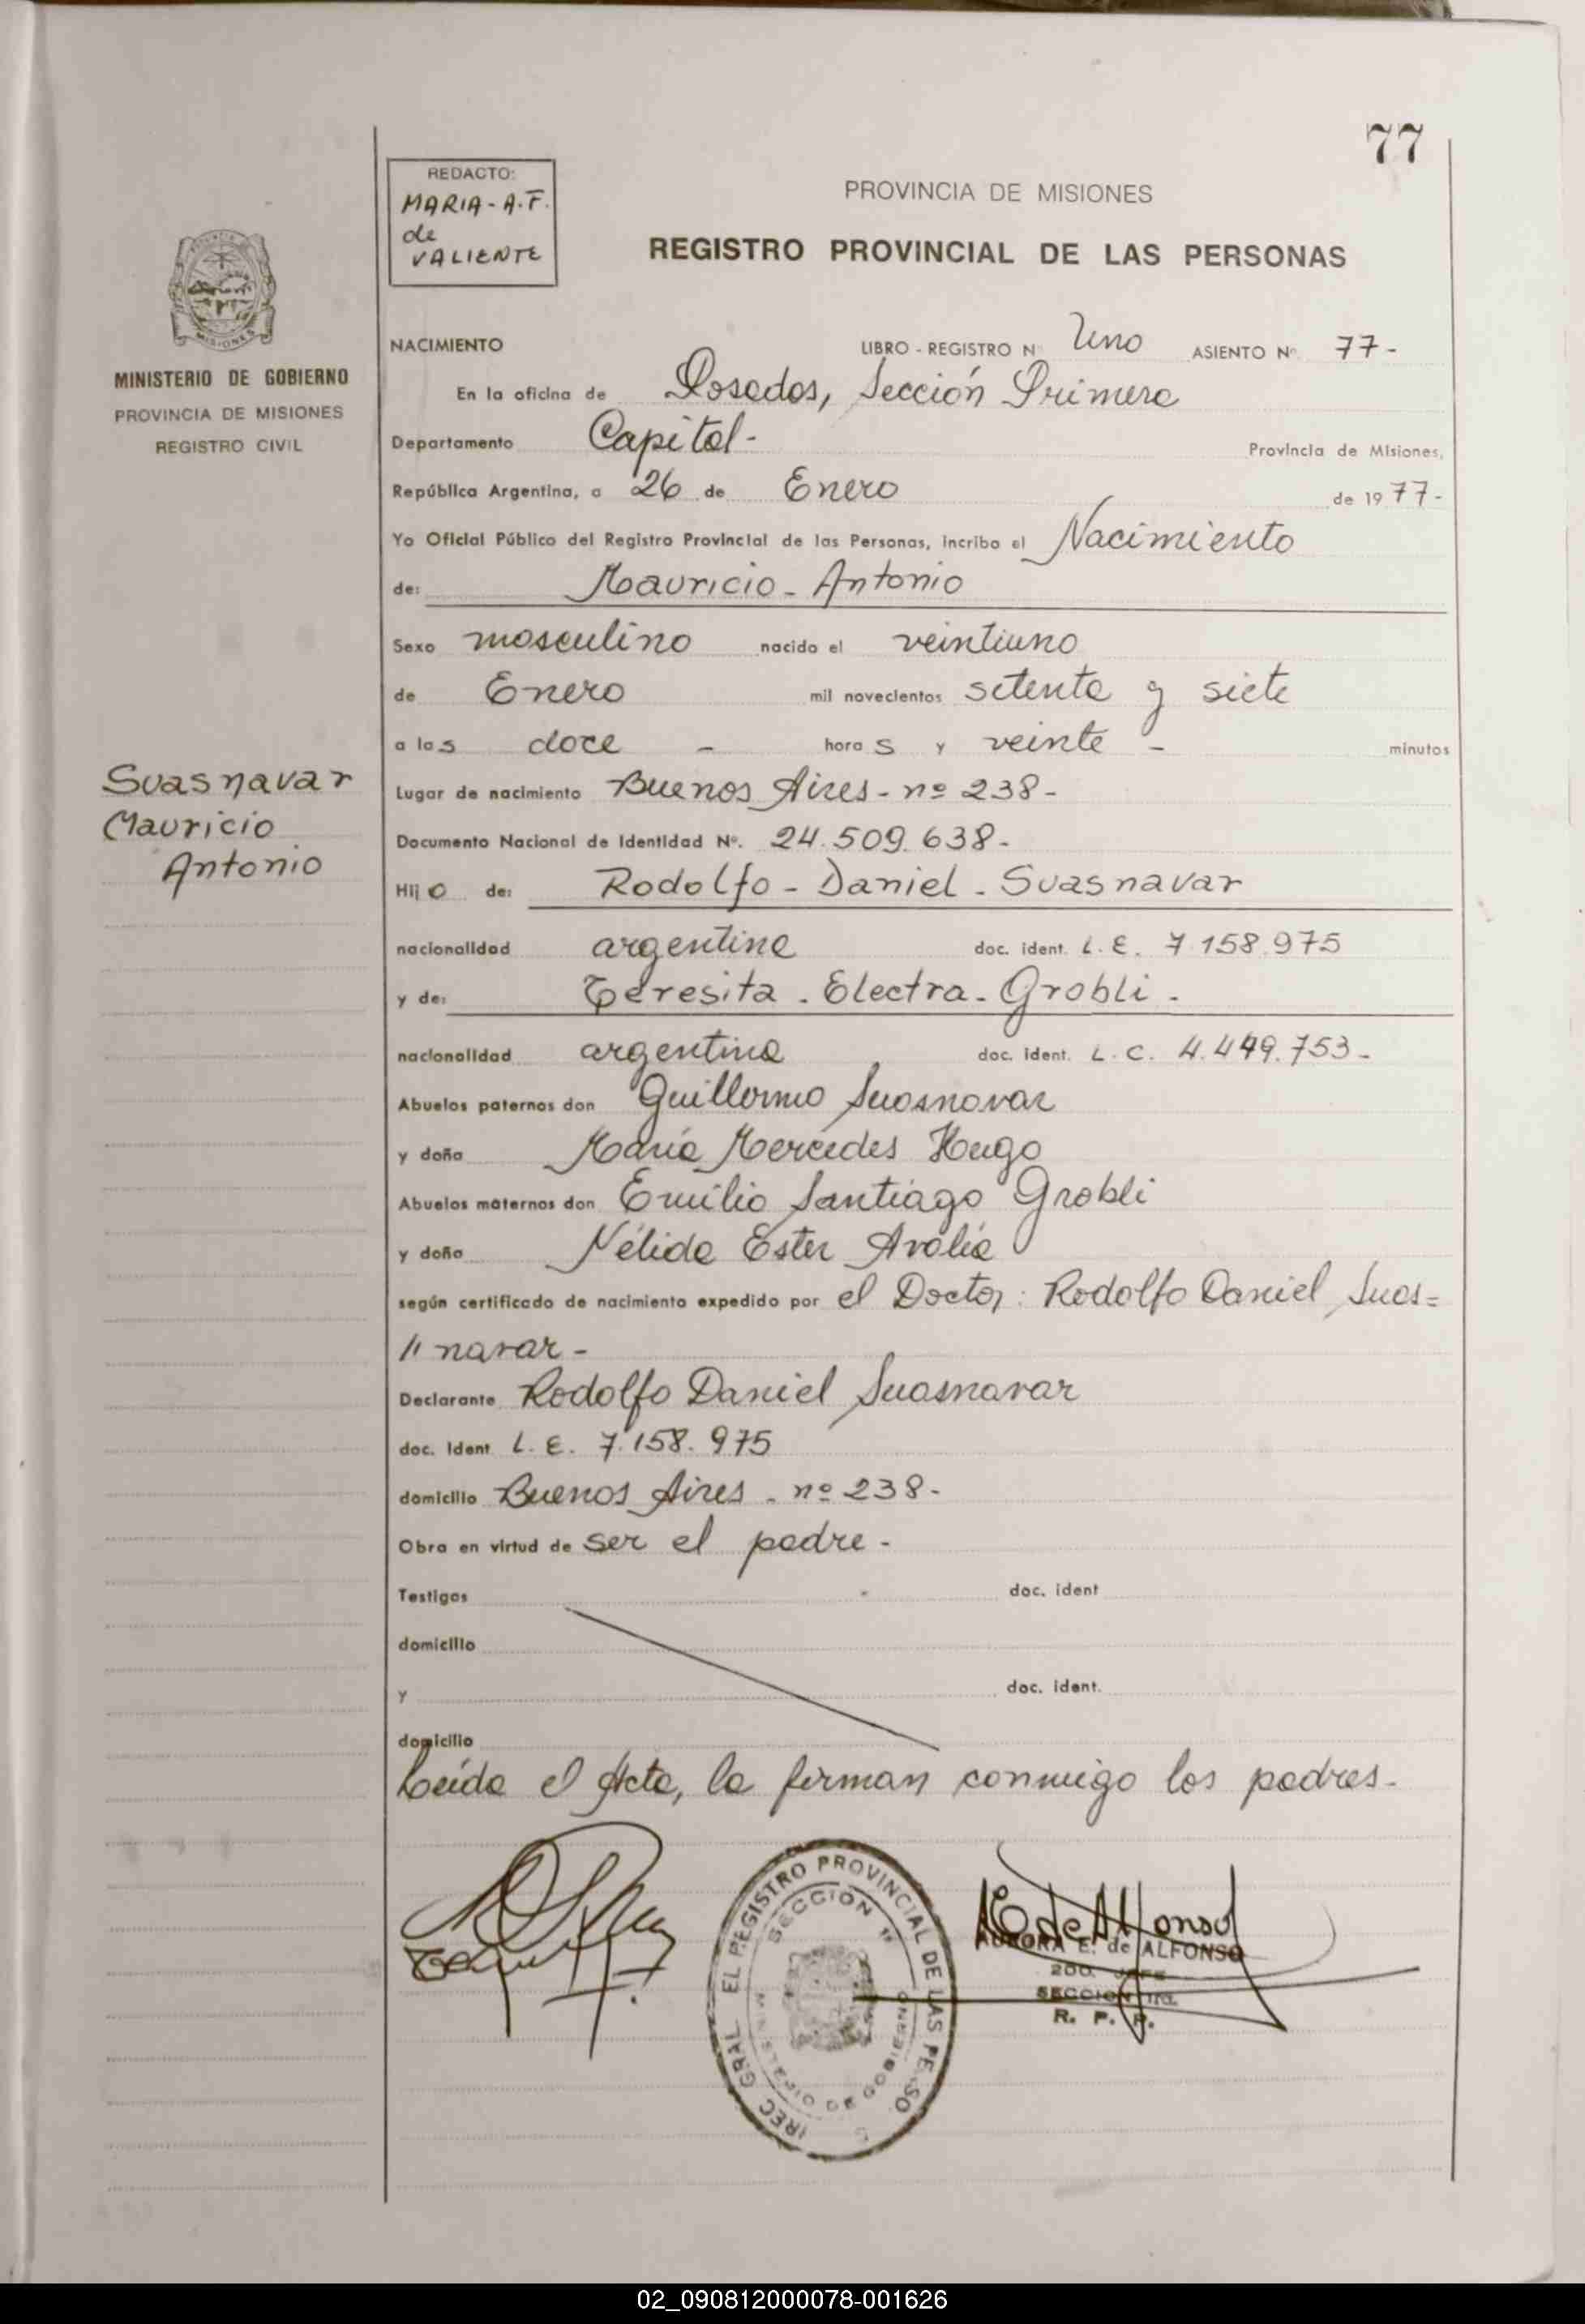 77
REDACTO:
MARIA - A.F.
de
VALIENTE
PROVINCIA DE MISIONES
REGISTRO PROVINCIAL DE LAS PERSONAS
MISIONES
MINISTERIO DE GOBIERNO
PROVINCIA DE MISIONES
REGISTRO CIVIL
NACIMIENTO LIBRO - REGISTRO Nº Uno ASIENTO Nº 77-
En la oficina de Posadas, Sección Primera
Departamento Capital- Provincia de Misiones,
República Argentina, a 26 de Enero de 1977-
Yo Oficial Público del Registro Provincial de las Personas, incribo el Nacimiento
de: Mauricio - Antonio
Sexo masculino nacido el veintiuno
de Enero mil novecientos setenta y siete
a las doce - horas y veinte - minutos
Suasnavar
Mauricio
Antonio
Lugar de nacimiento Buenos Aires - nº 238-
Documento Nacional de Identidad Nº. 24.509.638-
Hijo de: Rodolfo - Daniel - Suasnavar
nacionalidad argentina doc. ident. L.E. 7.158.975
y de: Teresita - Electra - Grobli -
nacionalidad argentina doc. ident. L.C. 4.449.753-
Abuelos paternos don Guillermo Suasnavar
y doña María Mercedes Hugo
Abuelos maternos don Emilio Santiago Grobli
y doña Nélida Ester Avalía
según certificado de nacimiento expedido por el Doctor: Rodolfo Daniel Suas=
// navar -
Declarante Rodolfo Daniel Suasnavar
doc. ident L.E. 7.158.975
domicilio Buenos Aires - nº 238-
Obra en virtud de ser el padre -
Testigos doc. ident
domicilio
y doc. ident.
domicilio
Leída el Acta, la firman conmigo los padres-
GRAL EL REGISTRO PROVINCIAL DE LAS PERSO
SECCION 1ª
MINISTERIO DE GOBIERNO
E de Alfonso
AURORA E. de ALFONSO
2DO. JEFE
SECCION 1ra.
R. P. P.
02_090812000078-001626